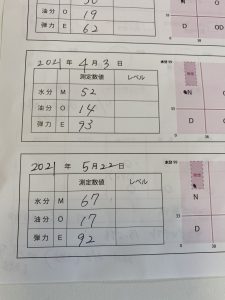 30
油分 O 19
弾力 E 62
N
D OD
38
2021 年 4 月 3 日
測定数値 レベル
水分 M 52
油分 O 14
弾力 E 93
水分 99
N
D O
38
2021 年 5月22日
測定数値 レベル
水分 M 67
油分 O 17
弾力 E 92
水分 99
N
D
38